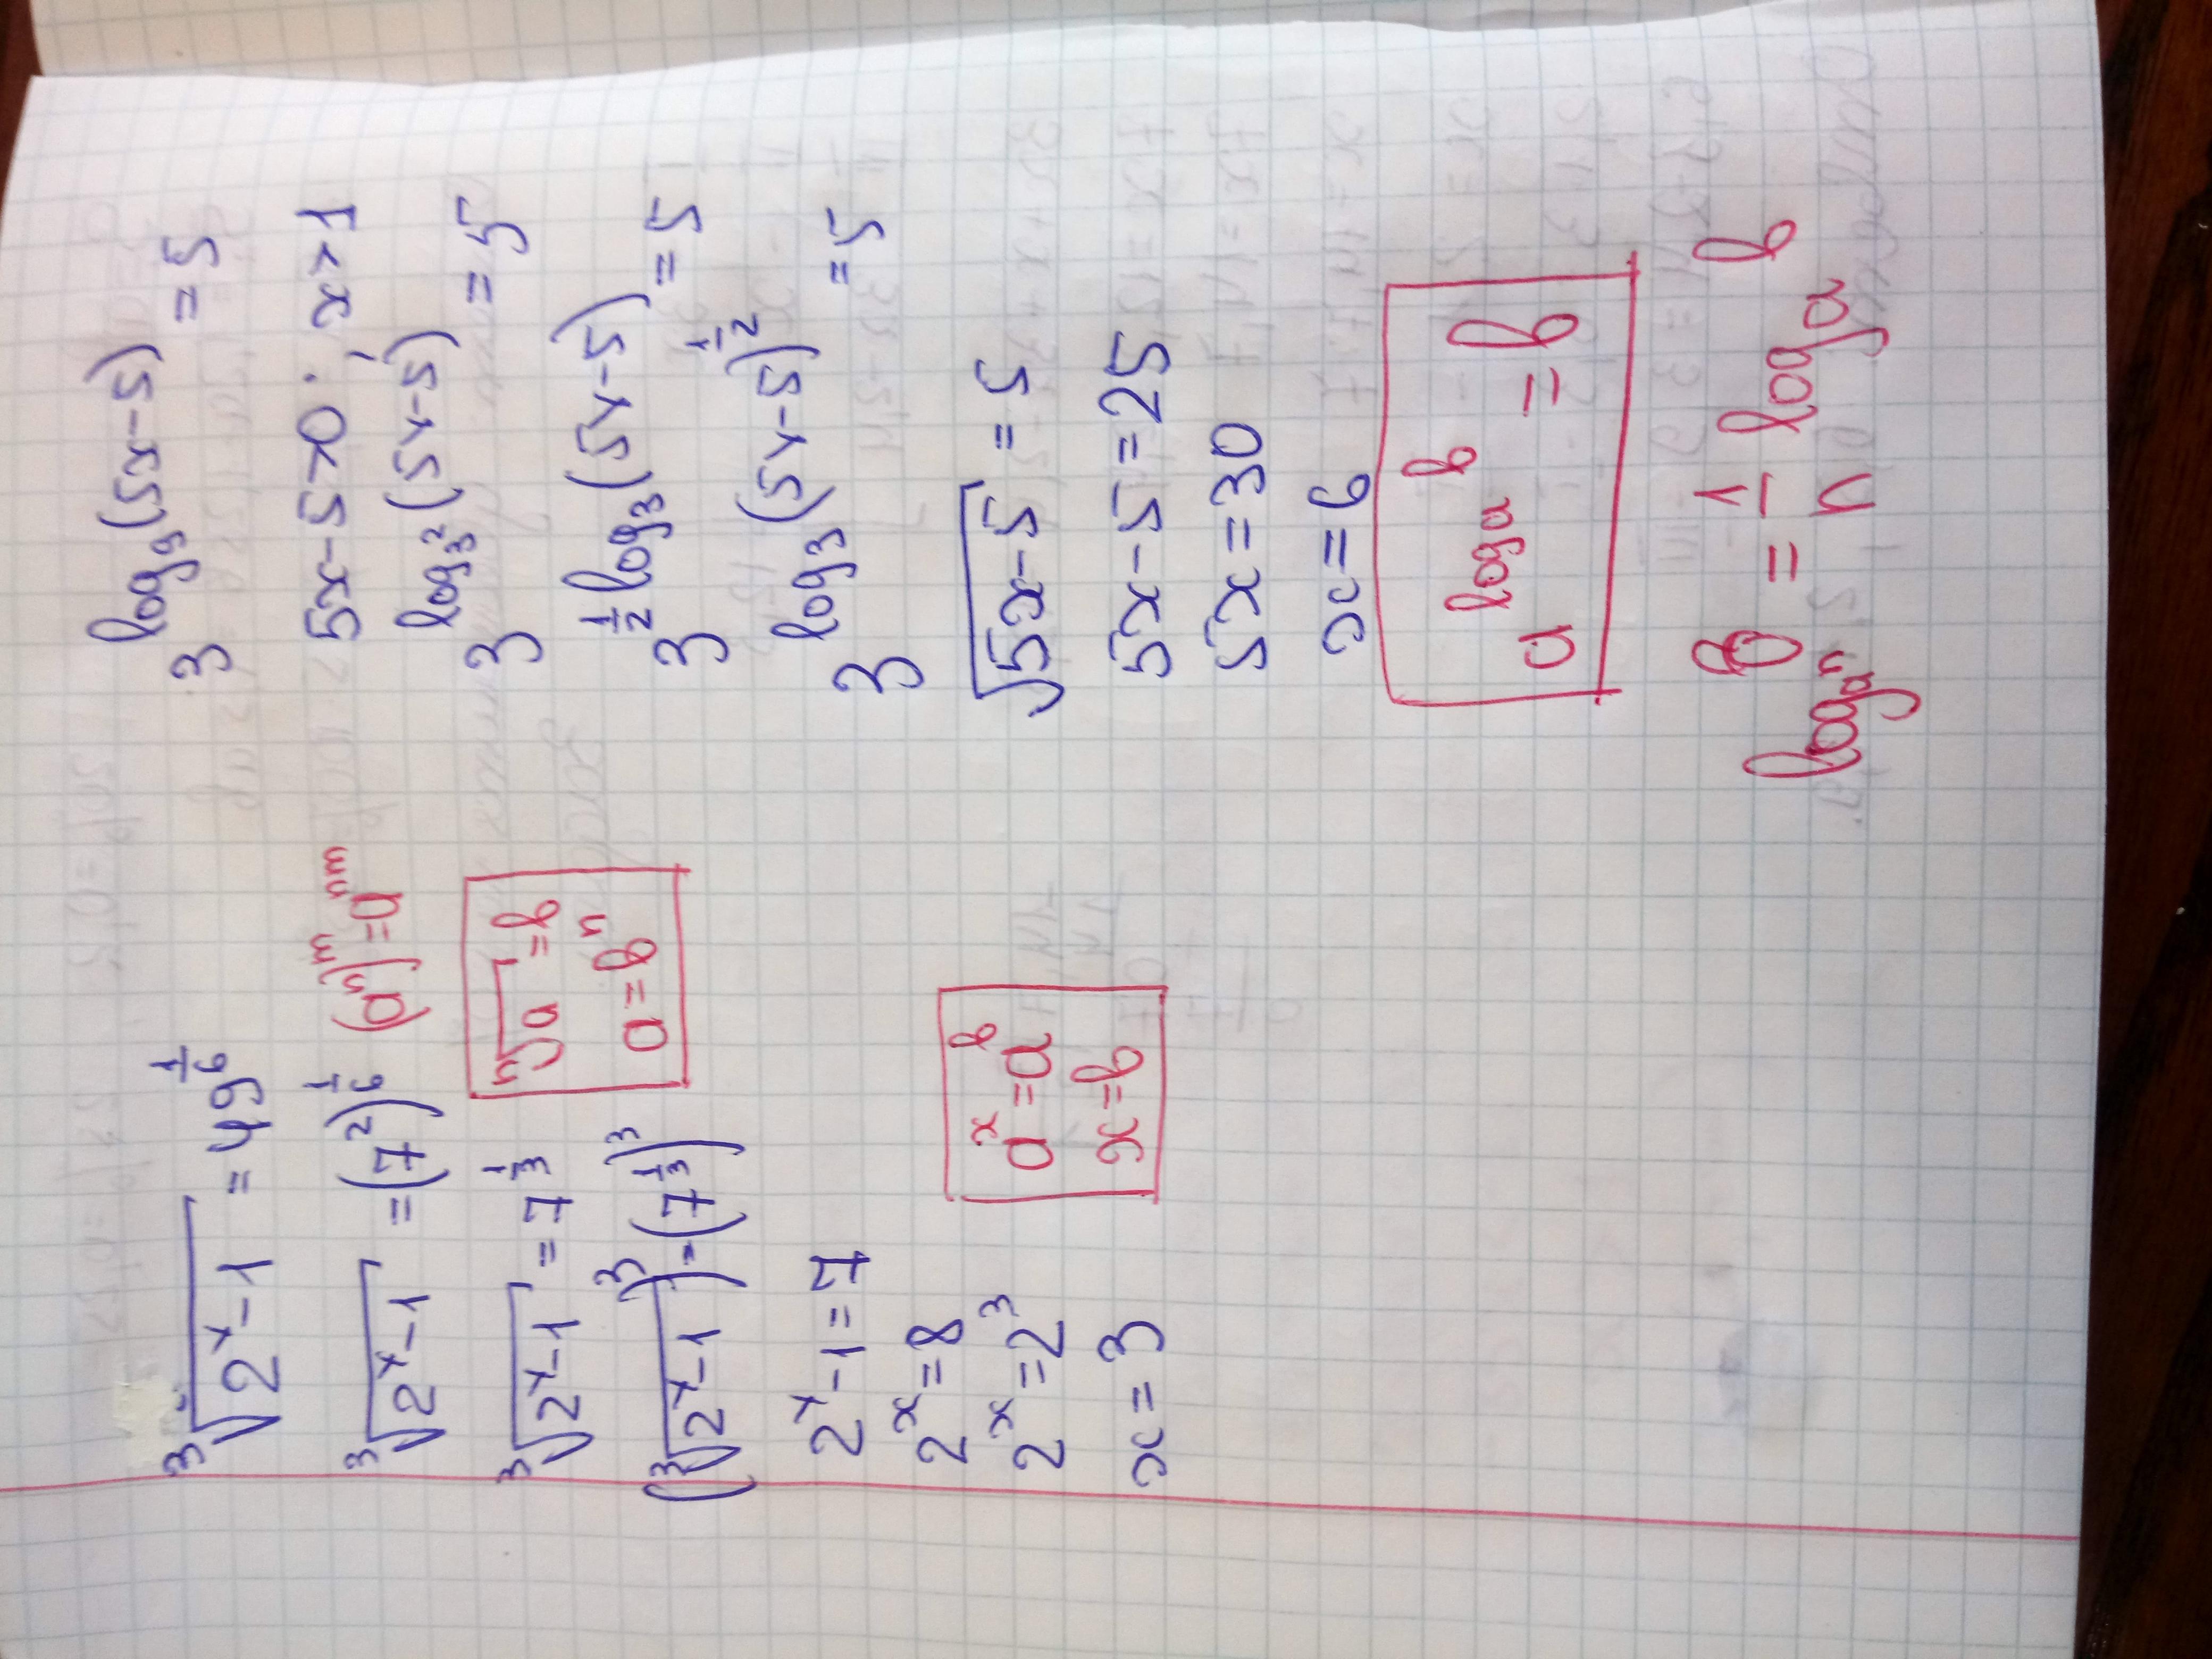 ∛(2^x-1) = 49^(1/6)
∛(2^x-1) = (7^2)^(1/6)
(a^n)^m = a^(nm)
∛(2^x-1) = 7^(1/3)
(∛(2^x-1))^3 = (7^(1/3))^3
ⁿ√a = b
a = b^n
2^x-1=7
2^x=8
2^x=2^3
x=3
a^x = a^b
x=b
3^(log_9(5x-5)) = 5
5x-5>0; x>1
3^(log_(3^2)(5x-5)) = 5
3^(1/2 log_3(5x-5)) = 5
3^(log_3(5x-5)^(1/2)) = 5
√(5x-5) = 5
5x-5=25
5x=30
x=6
a^(log_a b) = b
log_(a^n) b = 1/n log_a b